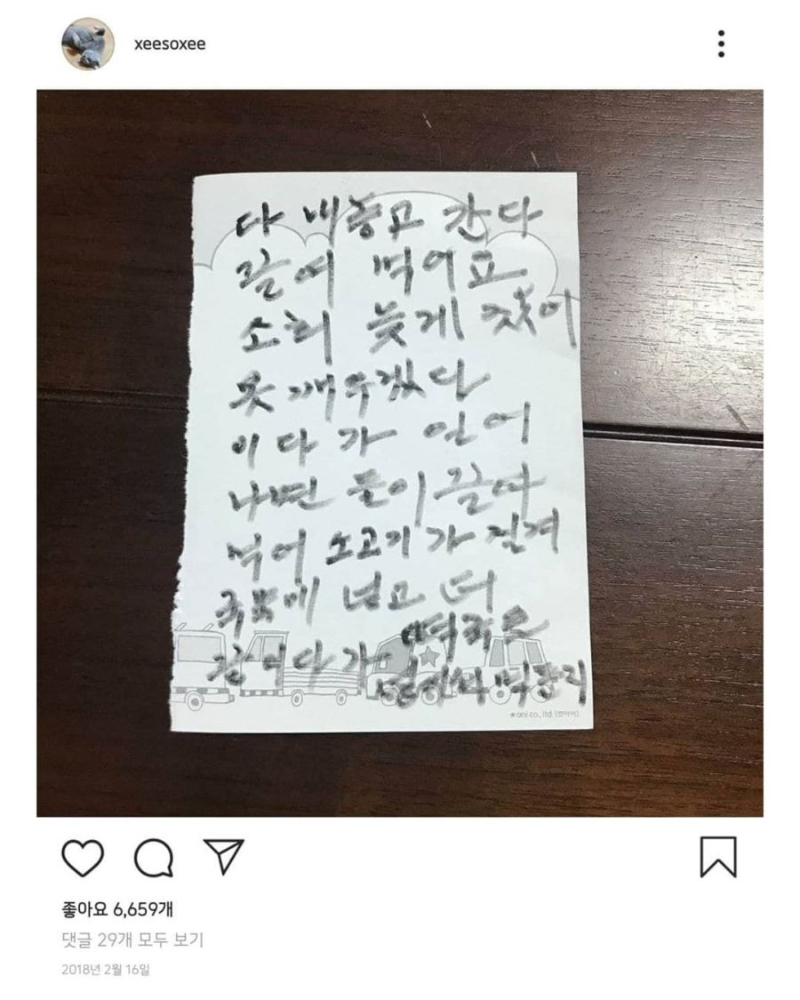 xeesoxee
다 내놓고 간다
끌여 먹어요
소희 늦게 잤어
못 깨우겠다
이다가 일어
나면 둘이 끌여
먹어 소고기가 질겨
국물에 넣고 더
떡국은
끌이다가
먹든지
좋아요 6,659개
댓글 29개 모두 보기
2018년 2월 16일